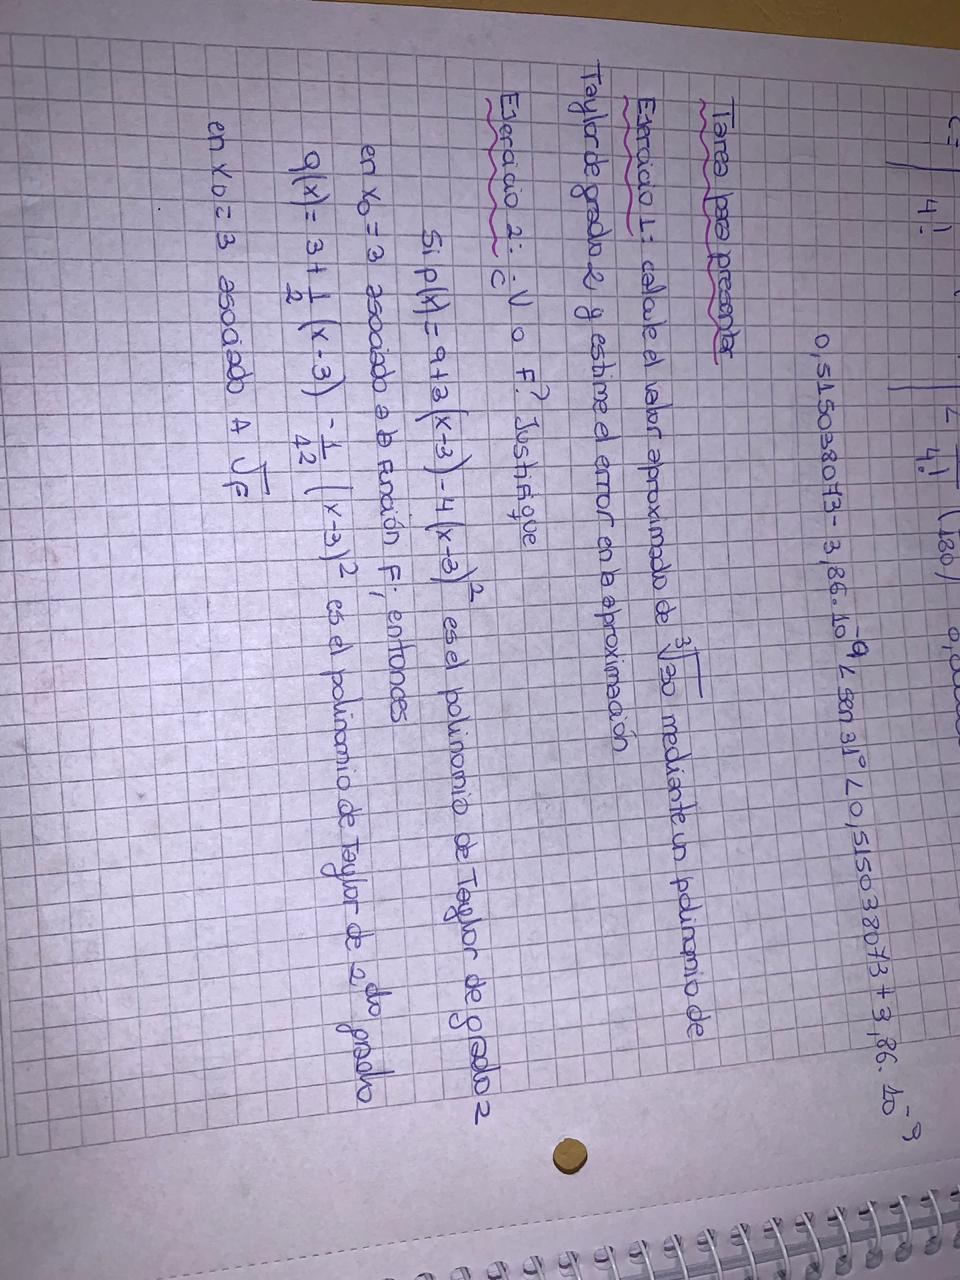 4!
4!
(180)
0,515038073 - 3,86.10⁻⁹ < sen 31° < 0,515038073 + 3,86.10⁻⁹
Tarea para presentar
Ejercicio 1: calcule el valor aproximado de ∛30 mediante un polinomio de
Taylor de grado 2 y estime el error en la aproximación
Ejercicio 2: ¿V o F? Justifique
Si p(x) = 9+3(x-3)-4(x-3)² es el polinomio de Taylor de grado 2
en x₀ = 3 asociado a la función F; entonces
q(x) = 3 + 1/2 (x-3) - 1/12 (x-3)² es el polinomio de Taylor de 2do grado
en x₀ = 3 asociado A √F